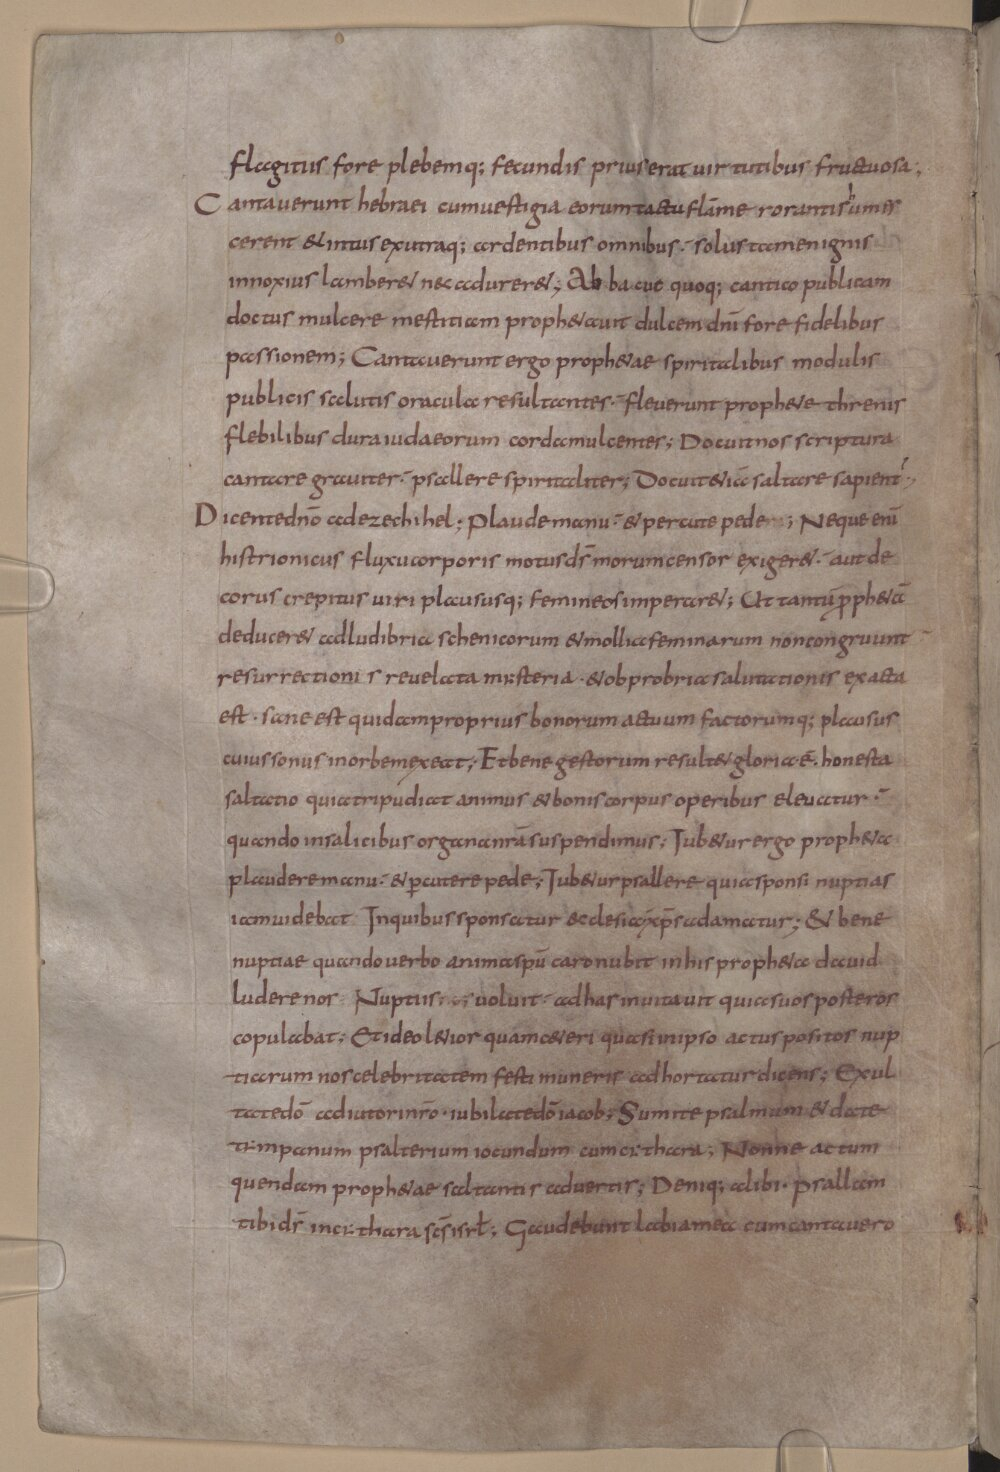 flagitiis fore plebemq; fecundis prius erat uirtutibus fructuosa;
Cantauerunt hebraei cum uestigia eorum tactu flāme rorantis umes
cerent & intus exutraq; ardentibus omnibus. solus tamen ignis
innoxius lamber& nec adurer&; Abbacuc quoq; cantico publicam
doctus mulcere mestitiam proph&auit dulcem dnī fore fidelibus
passionem; Cantauerunt ergo proph&ae spiritalibus modulis
publicis salutis oracula resultantes. fleuerunt proph&e threnis
flebilibus dura iudaeorum corda mulcentes; Docuit nos scriptura
cantare grauiter. psallere spiritaliter; Docuit &iā saltare sapient̕;
Dicente dnō ad ezechihel; Plaude manu. & percute pede; Neque enī
histrionicus fluxu corporis motus ds̄ morum censor exiger&. aut de
corus crepitus uiri plaususq; femineos imperar&; Ut tantū p̄ph&ā
deducer& ad ludibria schenicorum & mollia feminarum non congruunt
resurrectionis reuelata mysteria. & obprobria saltationis exacta
est. sane est quidam proprius bonorum actuum factorumq; plausus
cuius sonus in orbem exeat; Et bene gestorum result& gloria ē. honesta
saltatio qua tripudiat animus & bonis corpus operibus eleuatur.
quando in salicibus organa nrā suspendimus; Iub&ur ergo proph&a
plaudere manu. & p̄cutere pede; Iub&ur psallere quia sponsi nuptias
iam uidebat In quibus sponsatur ecclesia xp̄s adamatur; & bene
nuptiae quando uerbo anima spū caro nubit in his proph&a dauid
ludere nos Nuptiis uoluit. ad has inuitauit quia suos posteros
copulabat; Et ideo l&ior quam c&eri quasi in ipso actus positos nup
tiarum nos celebritatem festi muneris adhortatur dicens; Exul
tate dō adiutori nrō. iubilate dō iacob; Sumite psalmum & date
tympanum psalterium iocundum cum cythara; Nonne actum
quendam proph&ae saltantis aduertis; Deniq; alibi. psallam
tibi ds̄ in cythara scs̄ isrł; Gaudebunt labia mea cum cantauero